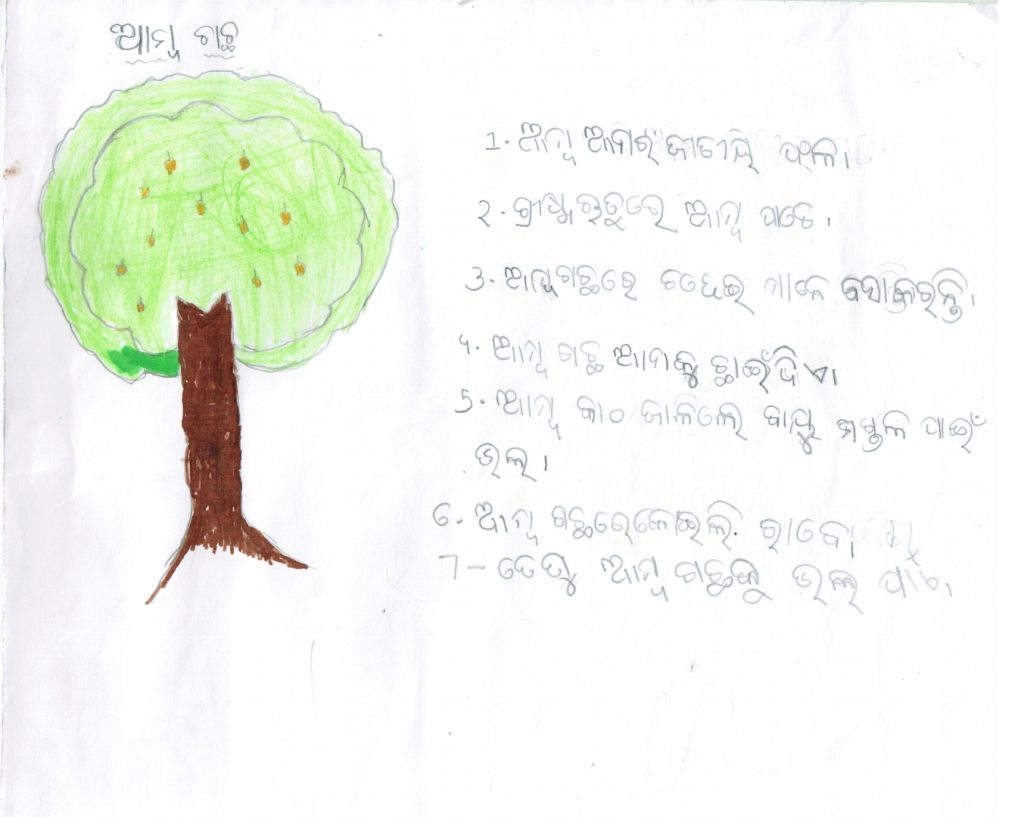 ଆମ୍ବ ଗଛ
1. ଆମ୍ବ ଆମର ଜାତୀୟ ଫଳ।
୨. ଗ୍ରୀଷ୍ମଋତୁରେ ଆମ୍ବ ପାଚେ।
3. ଆମ୍ବଗଛରେ ଚଢ଼େଇ ମାନେ ବସାକରନ୍ତି।
୪. ଆମ୍ବ ଗଛ ଆମକୁ ଛାଇଁ ଦିଏ।
5. ଆମ୍ବ କାଠ ଜାଳିଲେ ବାୟୁ ମଣ୍ଡଳ ପାଇଁ
ଭଲ।
6. ଆମ୍ବ ଗଛରେ କୋଇଲି ରାବେ।
7 - ତେଣୁ ଆମ୍ବ ଗଛକୁ ଭଲ ପାଏ।